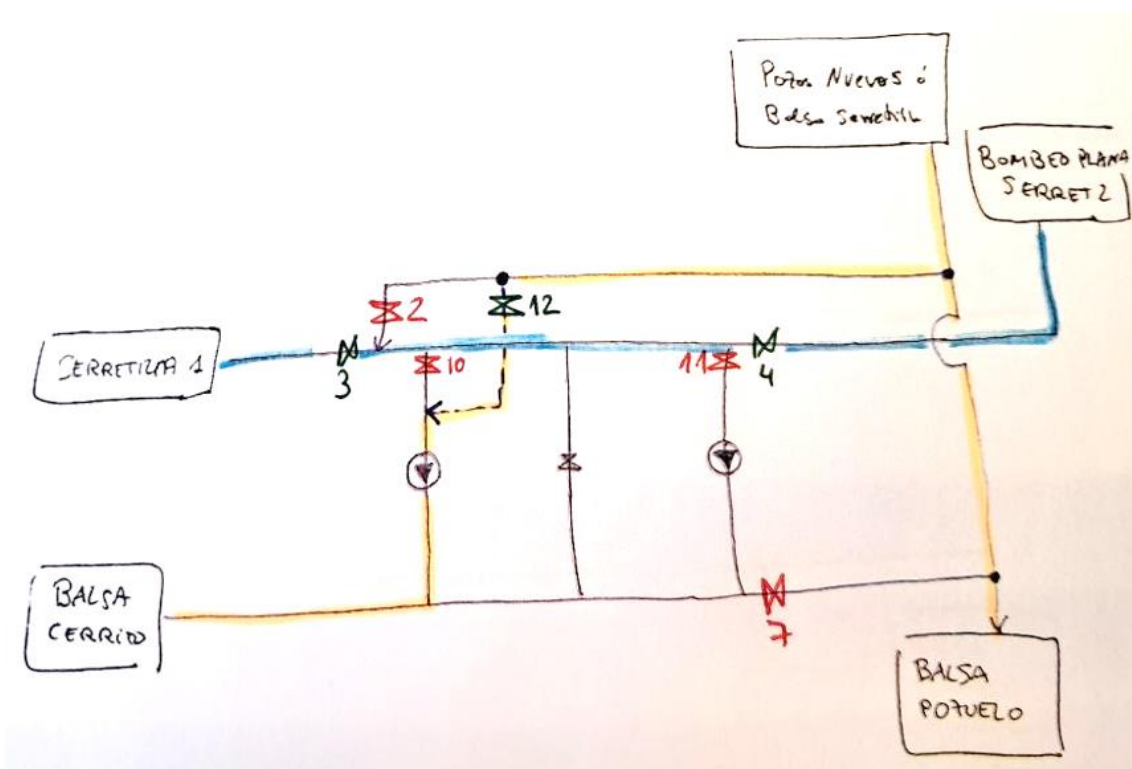 Pozos Nuevos ó
Balsa Serretilla
BOMBEO PLANA
SERRET 2
2
12
SERRETILLA 1
3
10
11
4
BALSA
CERRITO
7
BALSA
POZUELO